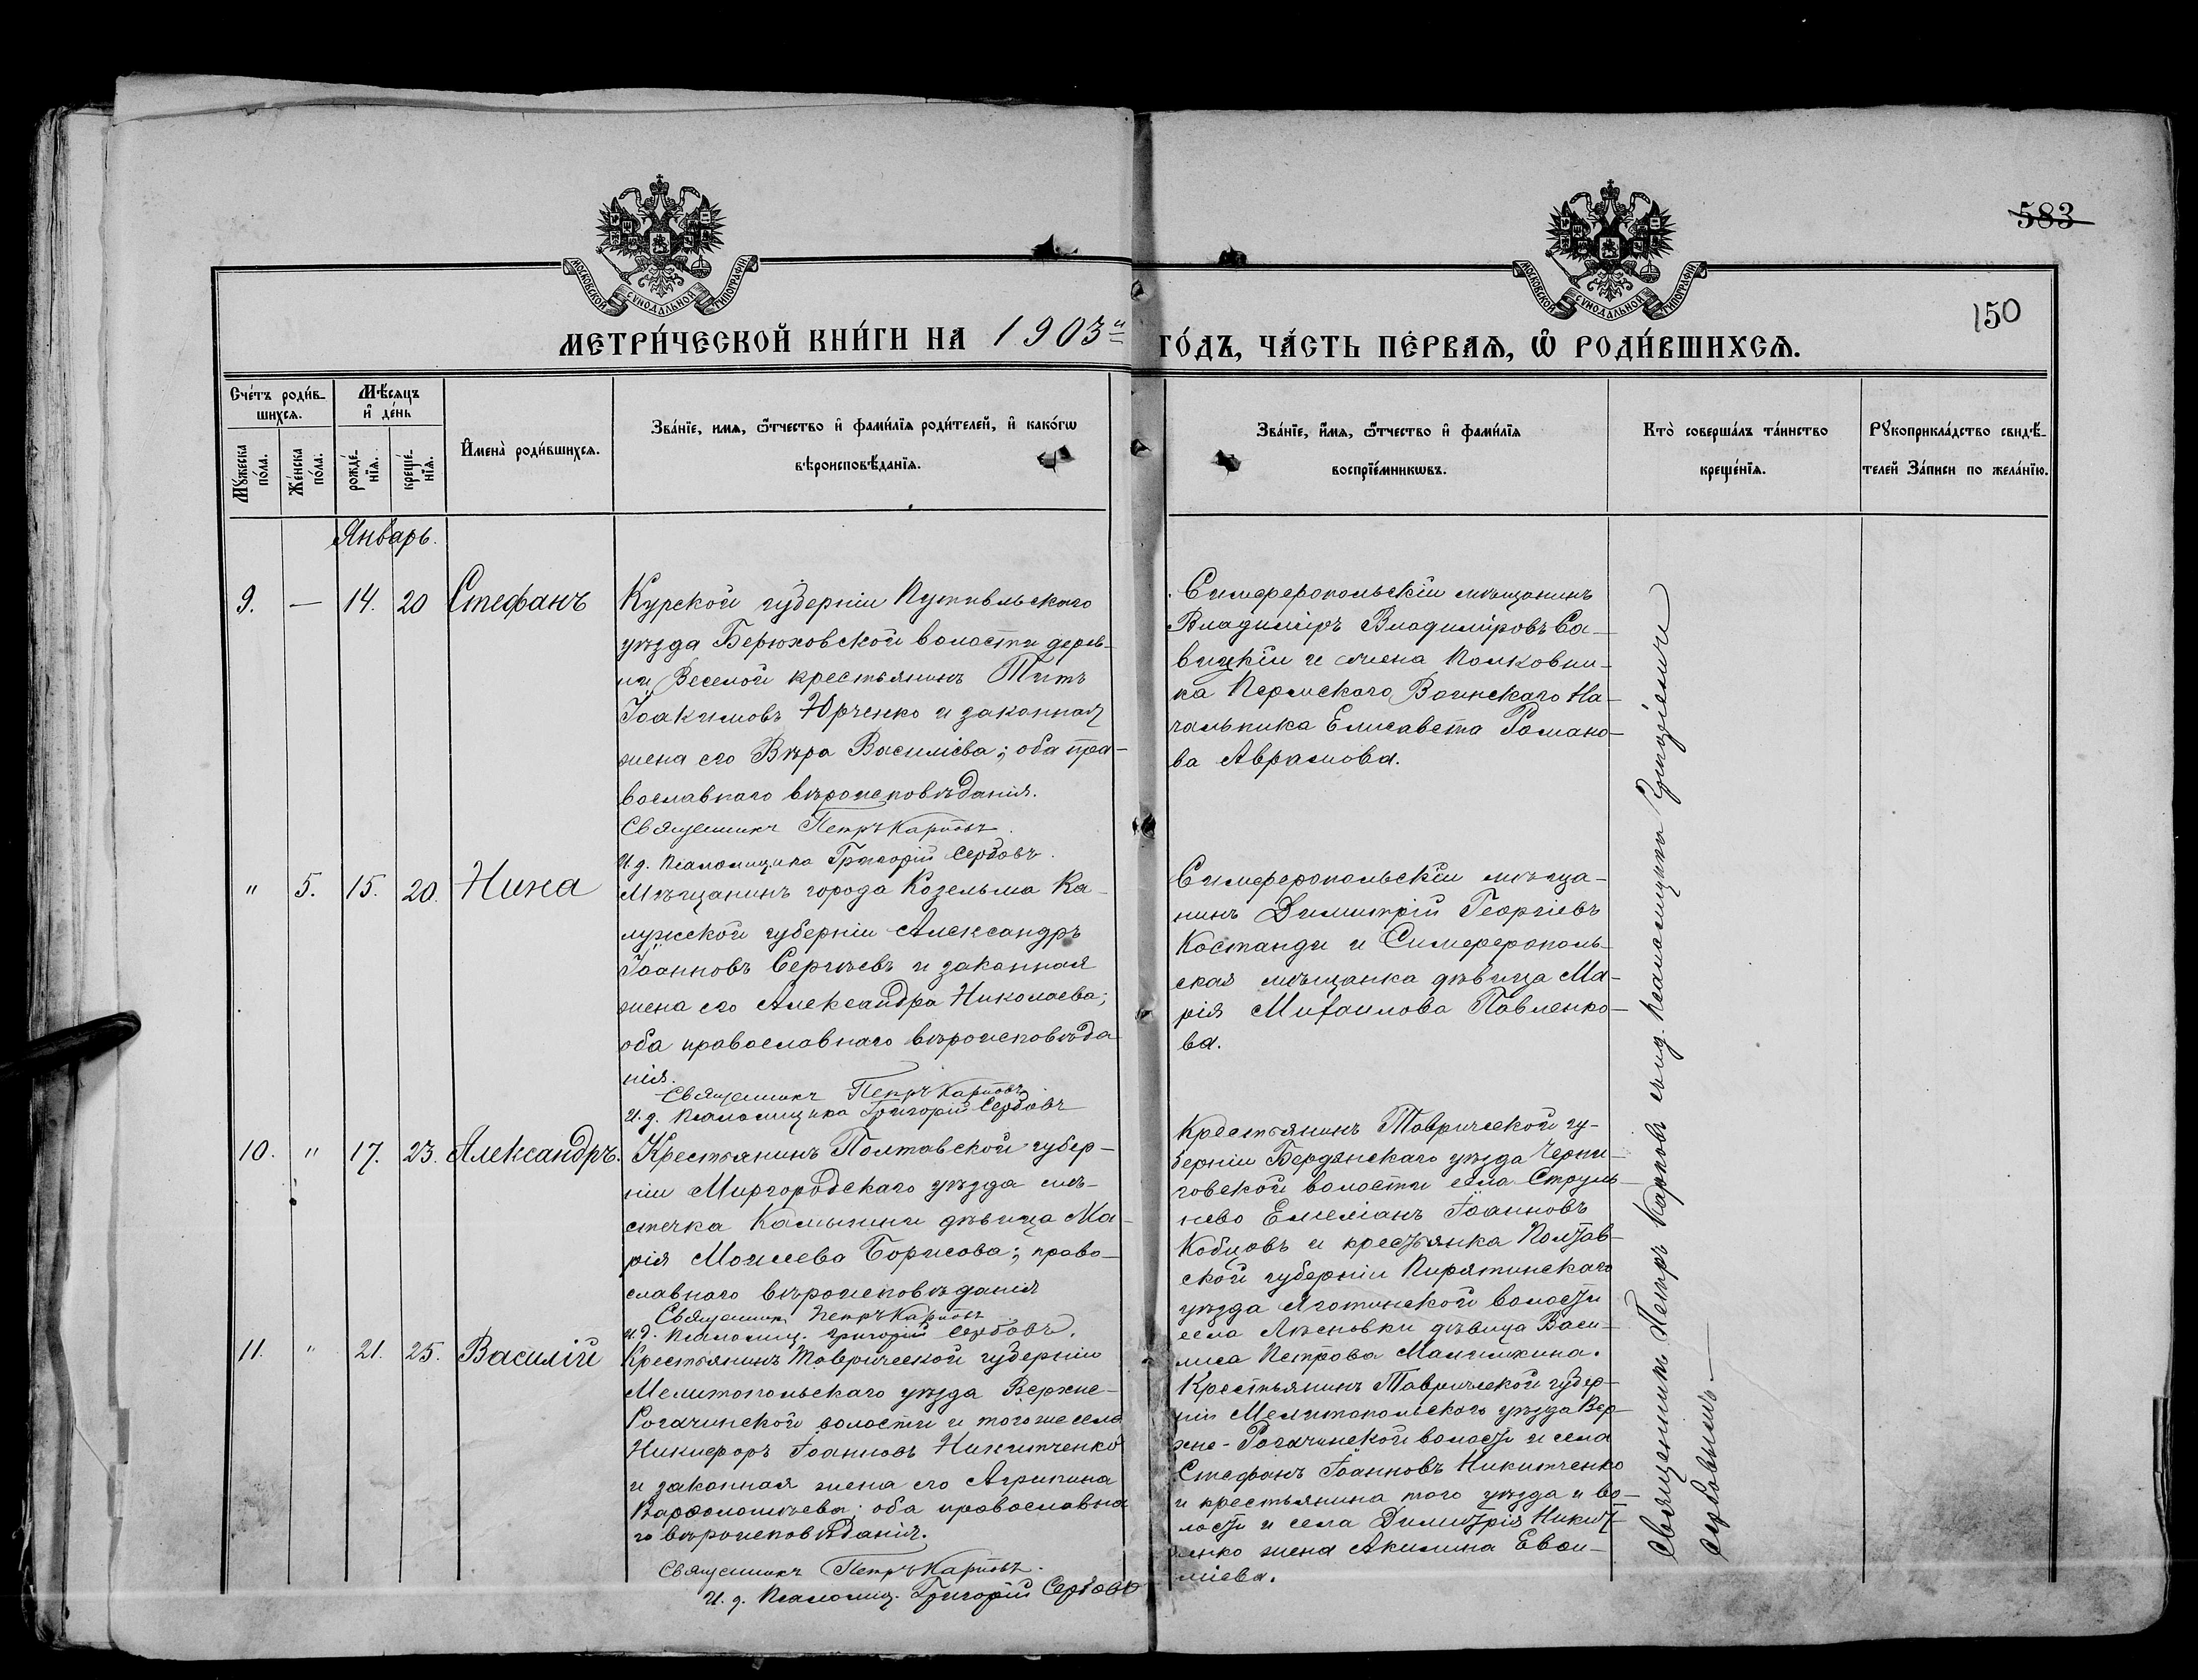 583
150
МОСКОВСКОЙ СѴНОДАЛЬНОЙ ТИПОГРАФІИ
МОСКОВСКОЙ СѴНОДАЛЬНОЙ ТИПОГРАФІИ
МЕТРИ́ЧЕСКОЙ КНИ́ГИ НА 1903й ГО́ДЪ, ЧА́СТЬ ПЕ́РВАѦ, Ѽ РОДИ́ВШИХСѦ.
Сче́тъ роди́в-
шихсѧ.
Мꙋ́жеска по́ла.
Же́нска по́ла.
Мѣ́сѧцъ
и҆ де́нь
рожде́-
нїѧ.
креще́-
нїѧ.
И҆мена̀ роди́вшихсѧ.
Зва́нїе, имѧ, ѿтчество и҆ фами́лїѧ роди́телей, и҆ како́гѡ
вѣроисповѣ́данїѧ.
Зва́нїе, и҆́мѧ, ѿтчество и҆ фами́лїѧ
воспрїе́мникѡвъ.
Кто̀ соверша́лъ та́инство
креще́нїѧ.
Рꙋкоприкла́дство свидѣ́-
телей За́писи по жела́нїю.
Январь.
9. — 14. 20 Стефанъ
Курской губерніи Путивльскаго
уѣзда Берюховской волости дерев-
ни Веселой крестьянинъ Титъ
Іоакимовъ Юрченко и законная
жена его Вѣра Василіева; оба пра-
вославнаго вѣроисповѣданія.
Священникъ Петръ Карповъ.
И. д. псаломщика Григорій Сербовъ.
Симферопольскій мѣщанинъ
Владиміръ Владиміровъ Са-
вицкій и жена Полковни-
ка Пермскаго Воинскаго На-
чальника Елисавета Романо-
ва Аврамова.
" 5. 15. 20. Нина
Мѣщанинъ города Козельма Ка-
лужской губерніи Александръ
Іоанновъ Сергѣевъ и законная
жена его Александра Николаева;
оба православнаго вѣроисповѣда
нія.
Священникъ Петръ Карповъ
И. д. псаломщика Григорій Сербовъ
Симферопольскій мѣща-
нинъ Димитрій Георгіевъ
Костанди и Симферополь-
ская мѣщанка дѣвица Ма-
рія Михаилова Павленко-
ва.
10. " 17. 23. Александръ.
Крестьянинъ Полтавской губер-
ніи Миргородскаго уѣзда мѣ-
стечка Камышни дѣвица Ма-
рія Моисеева Борисова; право-
славнаго вѣроисповѣданія
Священникъ Петръ Карповъ
И. д. Псаломщ. Григорій Сербовъ.
Крестьянинъ Таврической гу-
берніи Бердянскаго уѣзда Черни-
говской волости села Струль-
нево Емеліанъ Іоанновъ
Кобцовъ и крестьянка Полтав-
ской губерніи Пирятинскаго
уѣзда Яготинской волости
села Лѣсновки дѣвица Васи-
лиса Петрова Малишкина.
11. " 21. 25. Василій
Крестьянинъ Таврической губерніи
Мелитопольскаго уѣзда Верхне-
Рогачинской волости и тогоже села
Никифоръ Іоанновъ Никитченко
и законная жена его Агрипина
Варѳоломѣева; оба православна
го вѣроисповѣданія.
Священникъ Петръ Карповъ.
И. д. Псаломщ. Григорій Сербовъ
Крестьянинъ Таврической губер-
ніи Мелитопольскаго уѣзда Вер-
хне-Рогачинской волости и села
Стефанъ Іоанновъ Никитченко
и крестьянина того уѣзда и во-
лости и села Димитрія Никит-
ченко жена Акилина Евѳи-
міева.
Священникъ Петръ Карповъ съ и.д. псаломщика Григоріемъ
Сербовымъ